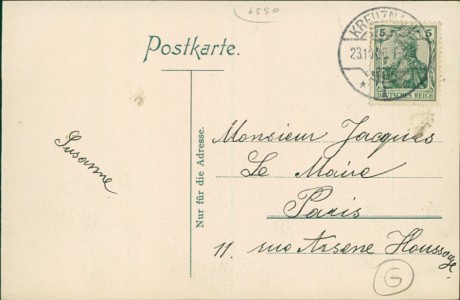 6550
Postkarte.
KREUZNACH
23.10.06.
5 5
DEUTSCHES REICH
Susanne
Nur für die Adresse.
Monsieur Jacques
Le Maire
Paris
11. rue Arsene Houssaye.
G